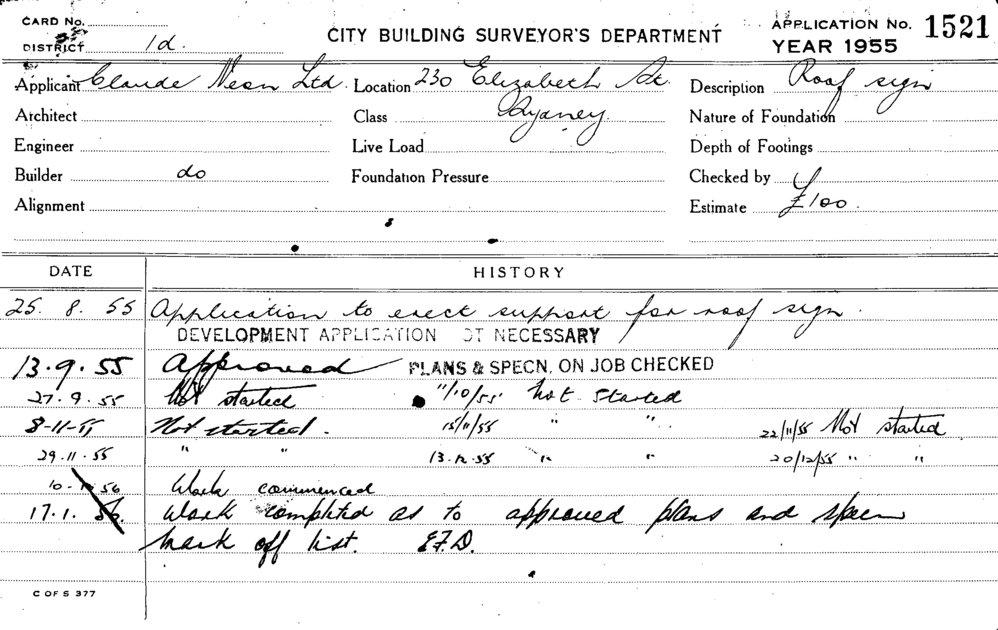 CARD No. APPLICATION No. 1521
DISTRICT 1d. CITY BUILDING SURVEYOR'S DEPARTMENT YEAR 1955
Applicant Claude Neon Ltd. Location 230 Elizabeth St. Description Roof sign
Architect Class Sydney. Nature of Foundation
Engineer Live Load Depth of Footings
Builder do Foundation Pressure Checked by
Alignment Estimate £100.
DATE HISTORY
25. 8. 55 Application to erect support for roof sign.
DEVELOPMENT APPLICATION OT NECESSARY
13.9.55 Approved PLANS & SPECN. ON JOB CHECKED
27.9.55 Not started 11/10/55 Not started
8-11-55 Not started. 15/11/55 " " 22/11/55 Not started
29.11.55 " " 13.12.55 " " 20/12/55 " "
56 Work commenced
17.1.56. Work completed as to approved plans and specn
Mark off list. E.F.D.
C OF S 377